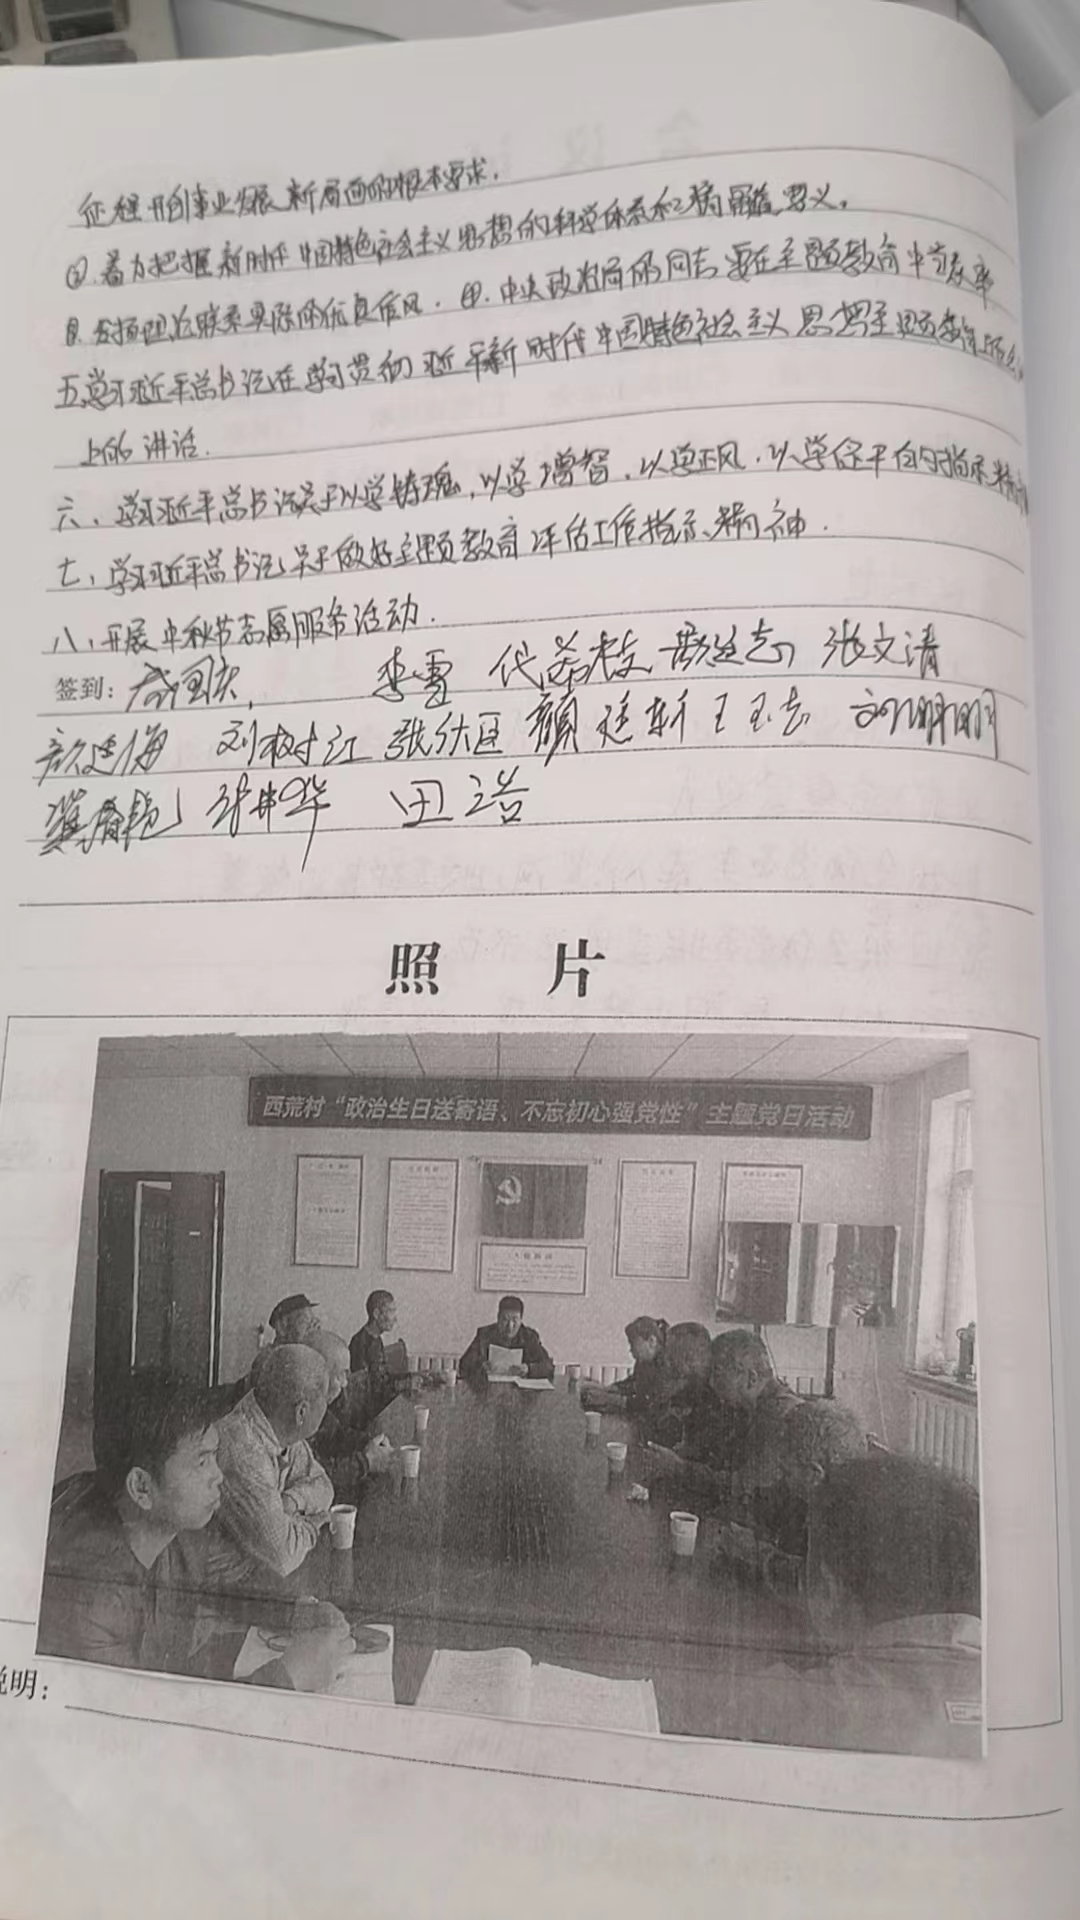 征程开创事业发展新局面的根本要求。
②.着力把握新时代中国特色社会主义思想的科学体系和精髓要义。
③.发扬理论联系实际的优良作风.④.中央政治局的同志要在主题教育中立表率
五、学习习近平总书记在学习贯彻习近平新时代中国特色社会主义思想主题教育
上的讲话.
六、学习习近平总书记关于以学铸魂,以学增智,以学正风,以学促干的指示精神
七、学习习近平总书记关于做好主题教育评估工作指示精神.
八、开展中秋节志愿服务活动.
签到: 李雪 张文清
刘树江 颜廷新 王玉志 刘明明
田浩
照 片
西荒村“政治生日送寄语、不忘初心强党性”主题党日活动
入党誓词
说明: